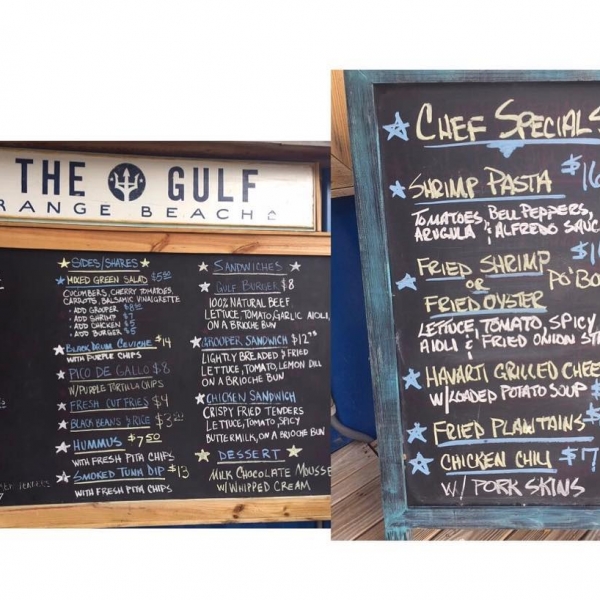 THE GULF
RANGE BEACH
SIDES/SHARES
MIXED GREEN SALAD $5.00
CUCUMBERS, CHERRY TOMATOES,
CARROTS, BALSAMIC VINAIGRETTE
• ADD GROUPER
• ADD SHRIMP
• ADD CHICKEN $5
• ADD BURGER $5
BLACK DRUM CEVICHE $14
WITH PURPLE CHIPS
PICO DE GALLO $8
W/PURPLE TORTILLA CHIPS
FRESH CUT FRIES $4
BLACK BEANS & RICE
HUMMUS $7.50
WITH FRESH PITA CHIPS
SMOKED TUNA DIP $13
WITH FRESH PITA CHIPS
SANDWICHES
GULF BURGER $8
100% NATURAL BEEF
LETTUCE, TOMATO, GARLIC AIOLI,
ON A BRIOCHE BUN
GROUPER SANDWICH
LIGHTLY BREADED & FRIED
LETTUCE, TOMATO, LEMON DILL
ON A BRIOCHE BUN
CHICKEN SANDWICH
CRISPY FRIED TENDERS
LETTUCE, TOMATO, SPICY
BUTTERMILK, ON A BRIOCHE BUN
DESSERT
MILK CHOCOLATE MOUSSE
W/ WHIPPED CREAM
CHEF SPECIALS
SHRIMP PASTA $16
TOMATOES, BELL PEPPERS,
ARUGULA & ALFREDO SAUC
FRIED SHRIMP
OR PO'BO
FRIED OYSTER
LETTUCE, TOMATO, SPICY
AIOLI & FRIED ONION ST
HAVARTI GRILLED CHEE
W/LOADED POTATO SOUP $
FRIED PLANTAINS $
CHICKEN CHILI $7
W/ PORK SKINS